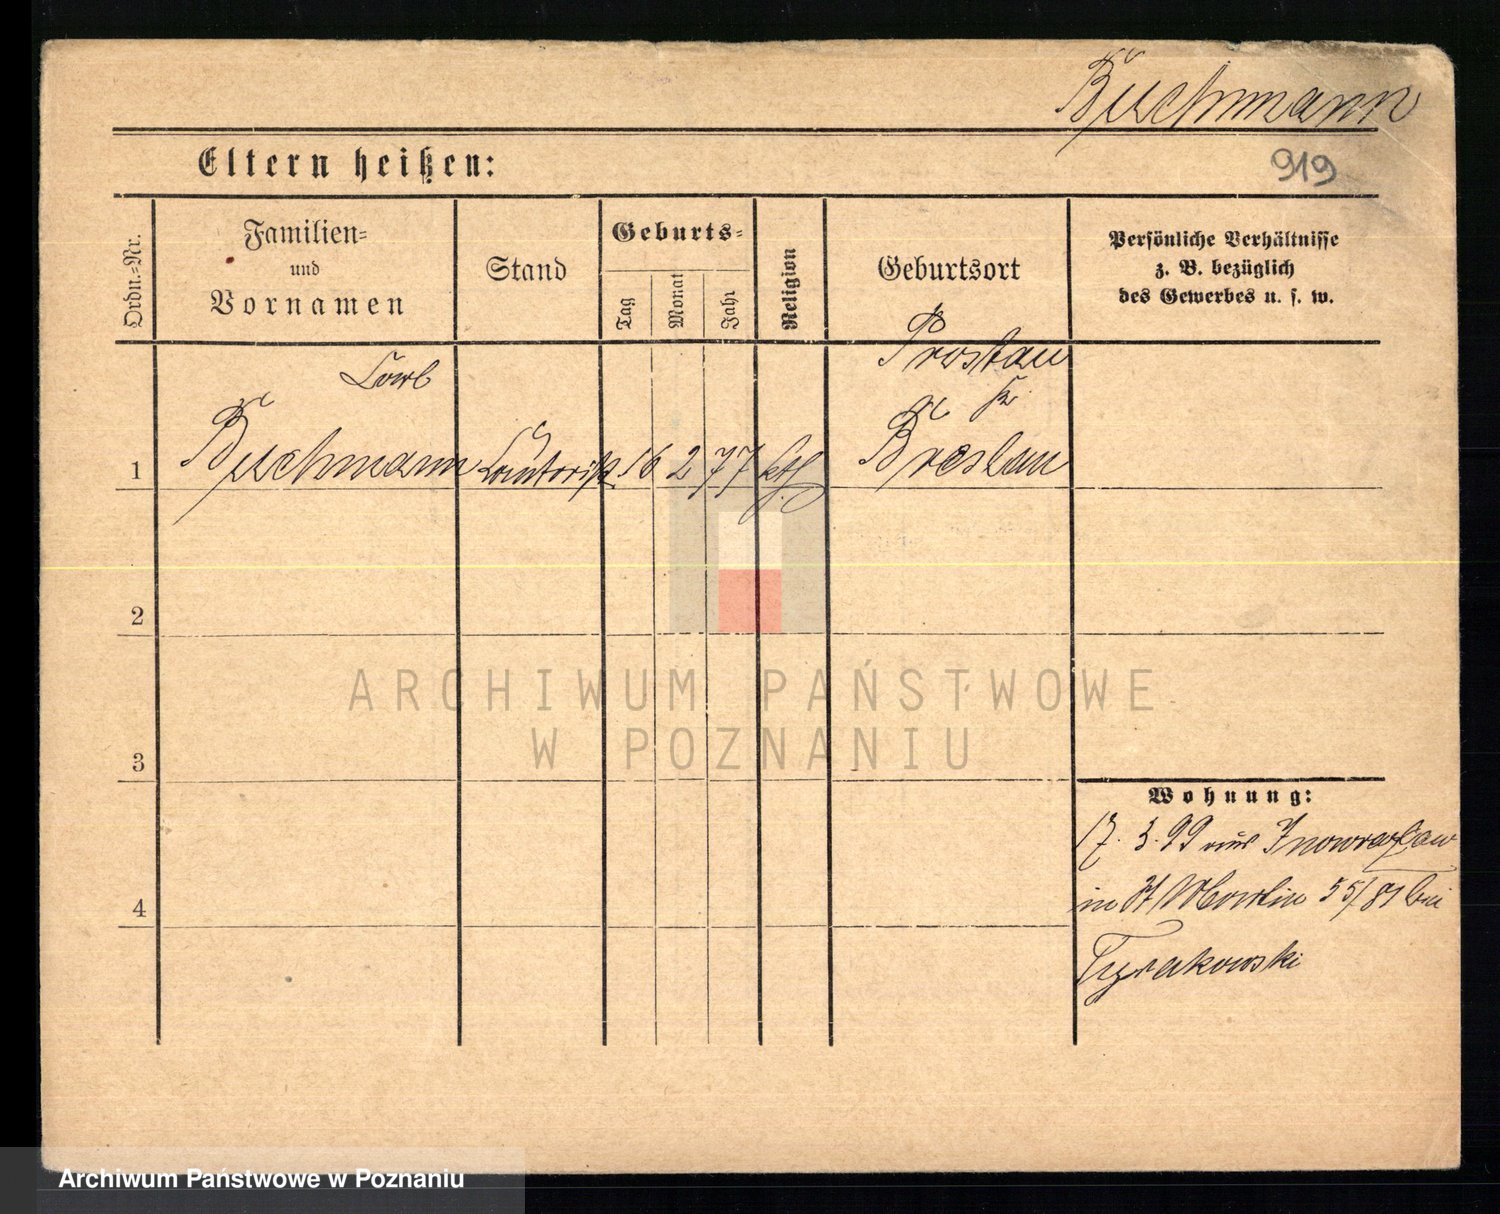 Buschmann
Eltern heißen:
919
Ordn.-Nr.
Familien-
und
Vornamen
Stand
Geburts-
Tag
Monat
Jahr
Religion
Geburtsort
Persönliche Verhältnisse
z. B. bezüglich
des Gewerbes u. s. w.
Prostau
Kr
1 Buschmann 16 2 77 kth Breslau
2
ARCHIWUM PAŃSTWOWE
W POZNANIU
3
Wohnung:
17. 3. 99 aus Inowrazlaw
in St 55/81 bei
4
Tyrakowski
Archiwum Państwowe w Poznaniu